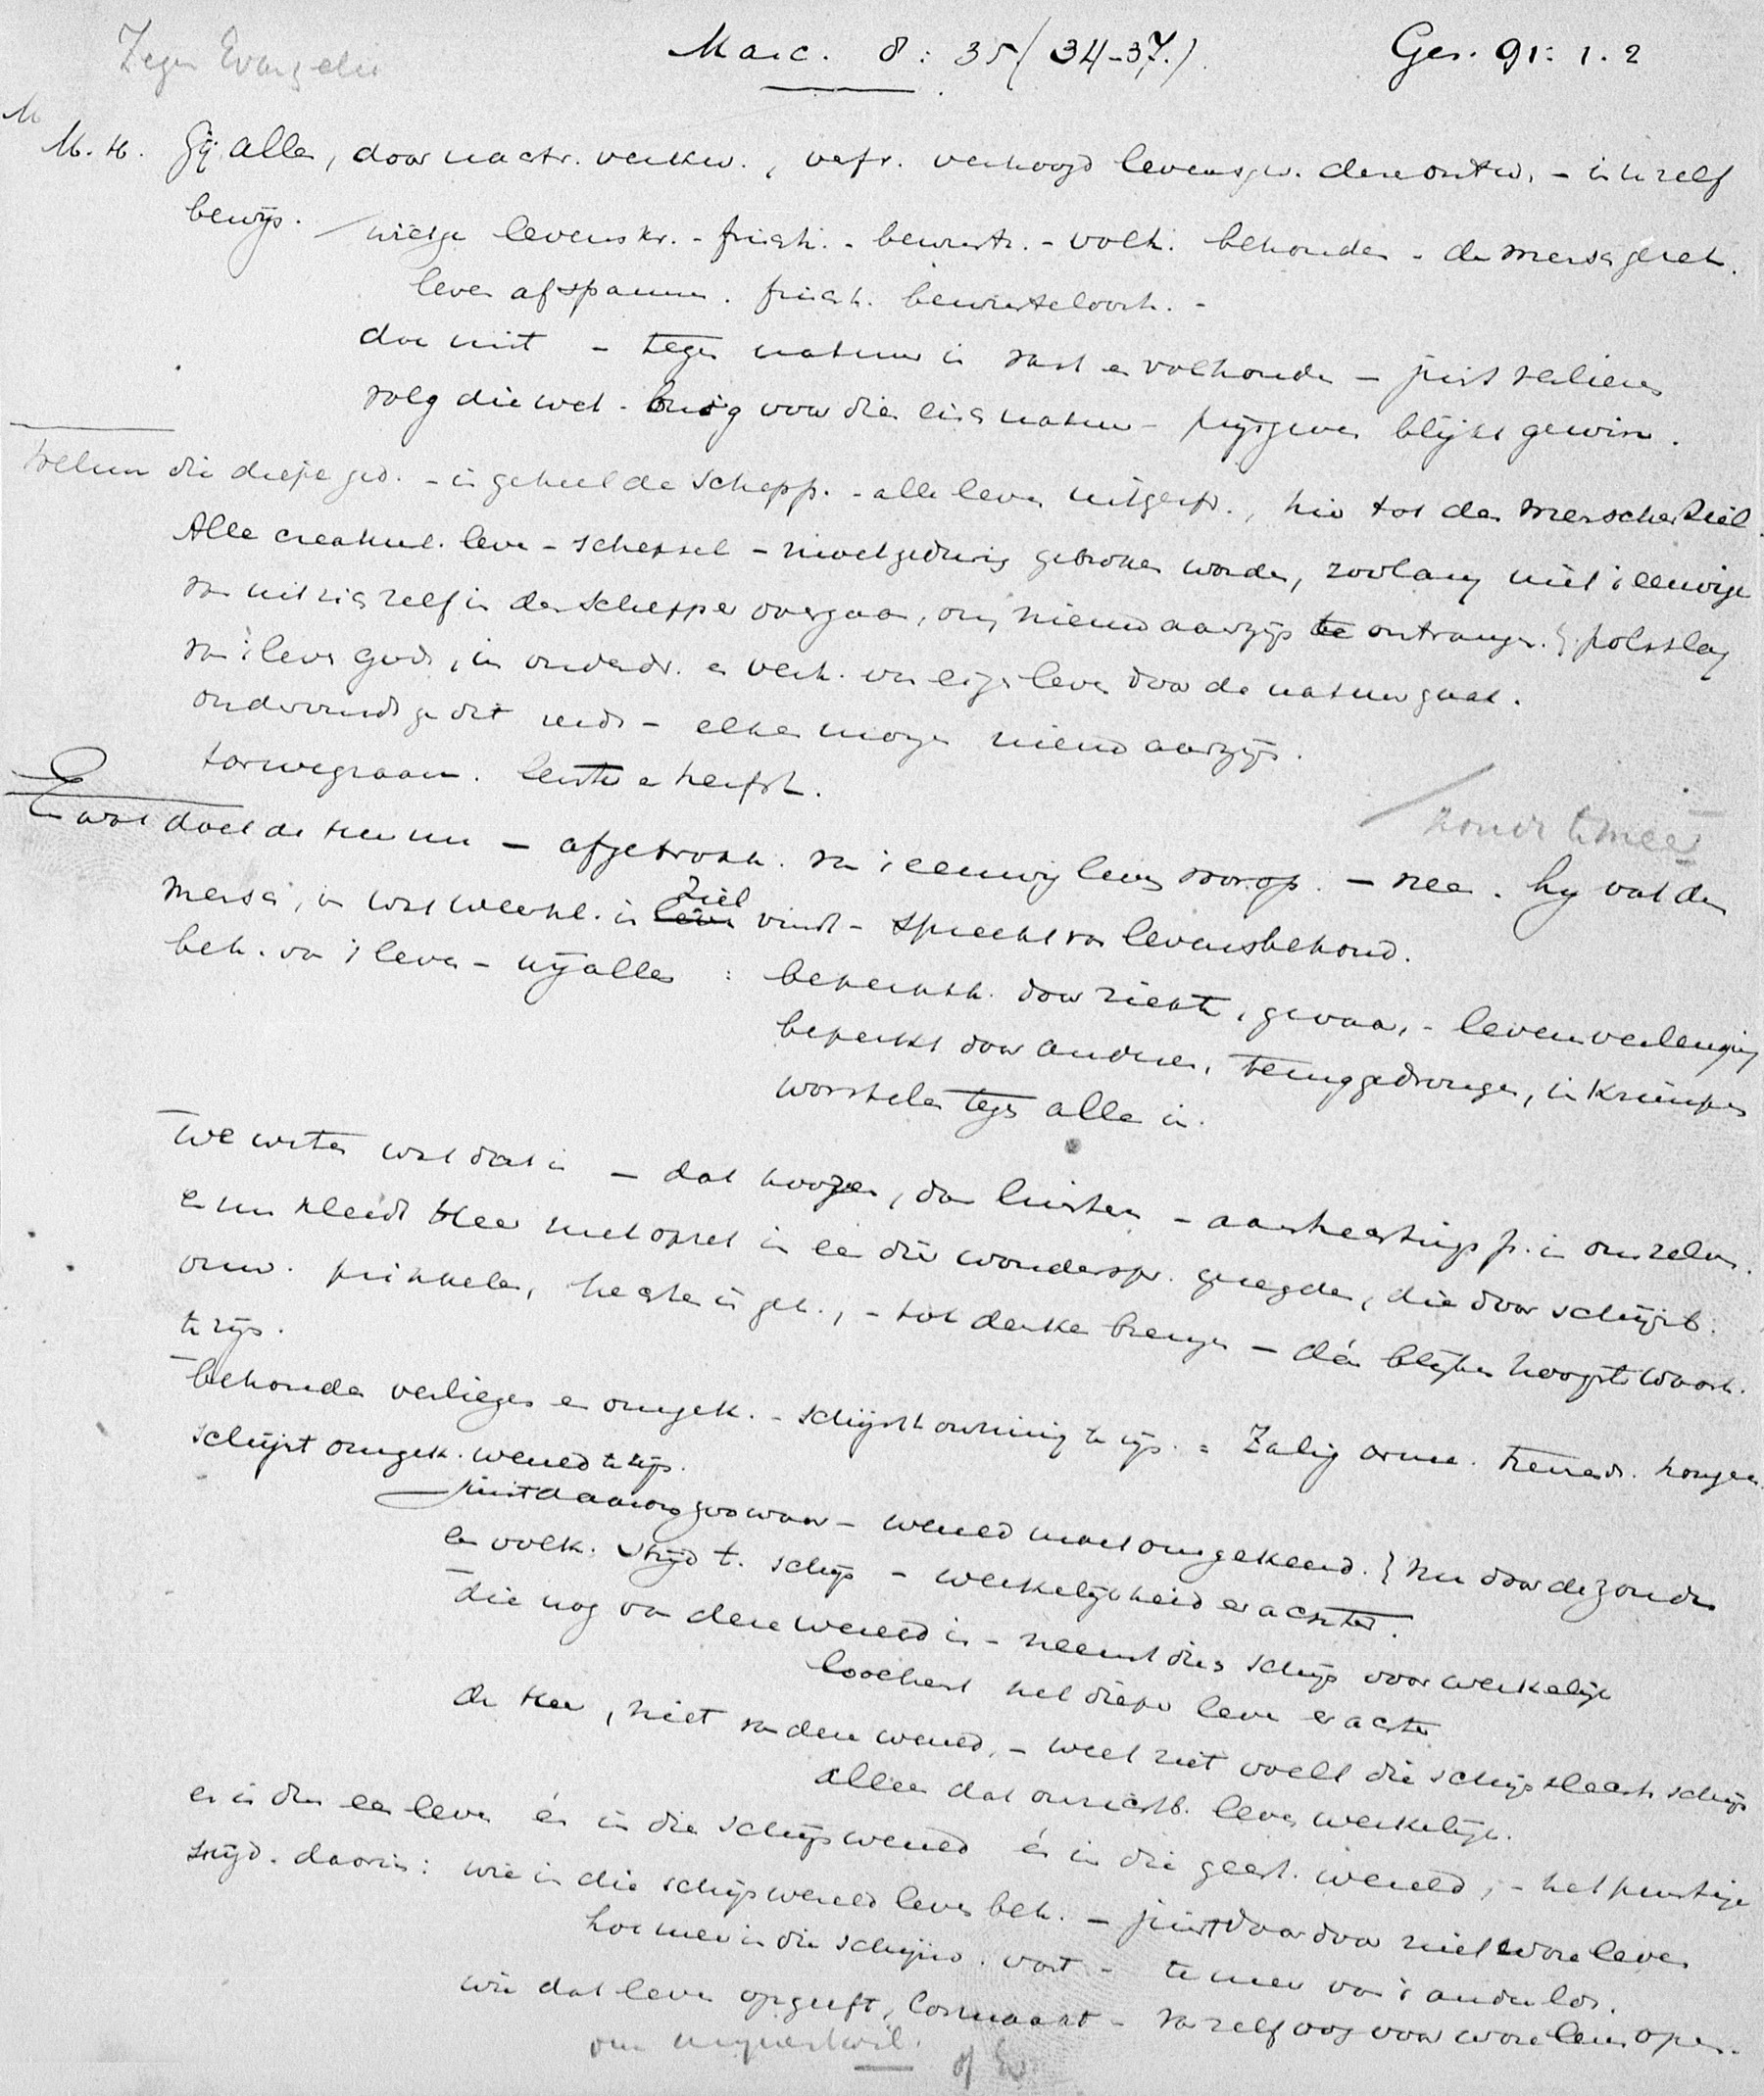 Zegen Evangelie
Marc. 8: 35 (34-37.) Gez. 91: 1. 2
M
M. H. Gij allen, door nachtr. verkw., verfr. verhoogd levensgev. dezen ochtend, - is u zelf
bewijs.
levenskr. - frisch. - bewustz. - volh. behouden - de mensch
leven afspannen. frisch. bewusteloosh. -
doe niet - tegen natuur in vast en volhouden - juist verliezen
volg die wet. buig voor dien eisch natuur - prijsgeven blijkt gewin.
Welnu die diepe ged. - in geheel de schepp. - alle leven uitgespr., hier tot den menschenziel.
Alle creatuurl. leven - schepsel - noodgedwongen gebroken worden, zoolang niet 't eeuwige
van uit zich zelf in den Schepper overgaan, om nieuw aanzijn te ontvangen. polsslag
van 't leven Gods, in onderdr. en verh. van eigen leven door de natuur gaat.
ondervindt ge dit reeds - elken morgen nieuw aanzijn.
tarwegraan. lente en herfst.
zonde tmeer
En wat doet de Heer nu - afgetrokk. van 't eeuwig leven voorop. - neen. hij vat den
mensch, in wat weerkl. in leven ziel vindt - spreekt van levensbehoud.
beh. van 't leven - wij allen : beperkth. door ziekte, gevaar, - levensverlenging
beperkt door anderen, teruggedrongen, inkrimpen
worstelen tegen alles in.
We weten wat dat is - dat hoogen, dan luisteren - aanhechtingsp. in ons zelven.
en nu kleedt Heer met opzet in een dier wonderspr. gezegden, die door schijnb.
onw. prikkelen, hechten in geh., - tot denken brengen - dán blijken hoogste waarh.
te zijn.
behouden verliezen en omgek. - schijnt onzinnig te zijn. = Zalig armen. treurend. hongeren.
schijnt omgek. wereld te zijn.
juist daarom zoo waar - wereld moet omgekeerd. nu door de zonde
en volk. strijd t. schijn - werkelijkheid er achter.
die nog van deze wereld is - neemt dien schijn voor werkelijk
loochent het diepe leven er achter
de Heer, niet van deze wereld, - weet ziet voelt die schijn slechts schijn
alleen dat onzichtb. leven werkelijk.
er is dus een leven én in die schijnwereld én in die geest. wereld, - het
strijd. daarin: wie in die schijnwereld leven beh. - juist daardoor niet ware leven
hoe meer in die schijnw. vast - te meer van 't ander los.
wie dat leven opgeeft, losmaakt - van zelf oog voor ware leven open.
om mijnentwil. of Ev.